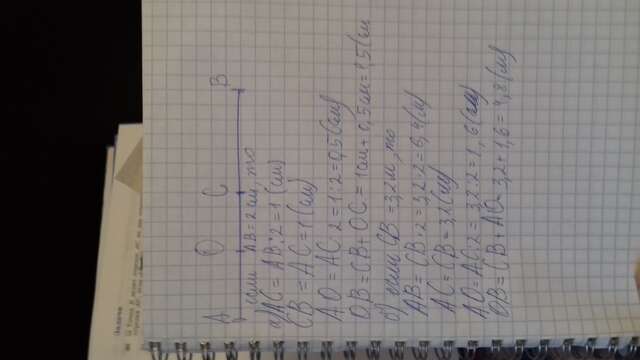 A O C B
если AB = 2 см, то
а) AC = AB : 2 = 1 (см)
CB = AC = 1 (см)
AO = AC : 2 = 1 : 2 = 0,5 (см)
OB = CB + OC = 1 см + 0,5 см = 1,5 (см
б) если CB = 3,2 м, то
AB = CB · 2 = 3,2 · 2 = 6,4 (м)
AC = CB = 3,2 (м)
AO = AC : 2 = 3,2 : 2 = 1,6 (м)
OB = CB + AO = 3,2 + 1,6 = 4,8 (м)
Задача